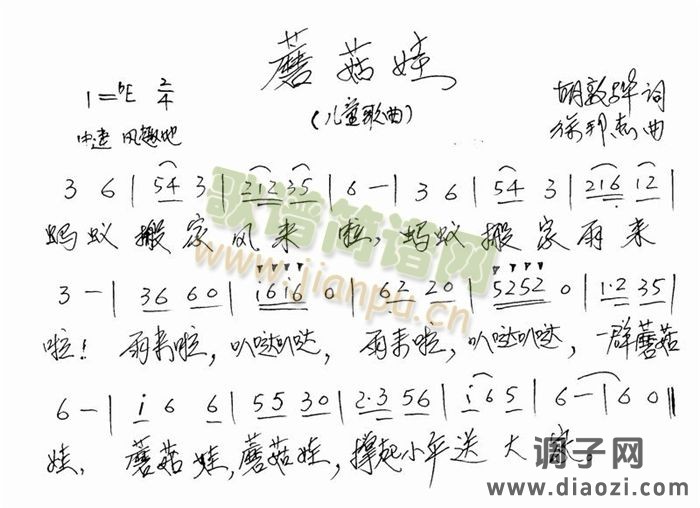 蘑菇娃
(儿童歌曲)
1=♭E 2/4
中速 风趣地
胡敦骅词
徐邦杰曲
3 6 | 54 3 | 212 35 | 6 - | 3 6 | 54 3 | 216 12 |
蚂蚁搬家风来啦,蚂蚁搬家雨来
3 - | 36 60 | i6i6 0 | 62 20 | 5252 0 | 1·2 35 |
啦!雨来啦,叭哒叭哒,雨来啦,叭哒叭哒,一群蘑菇
6 - | i 6 6 | 55 30 | 2·3 56 | i6 5 | 6 - | 6 0 ||
娃,蘑菇娃,蘑菇娃,撑起小伞送大家。
歌谱简谱网
www.jianpu.cn
调子网
www.diaozi.com